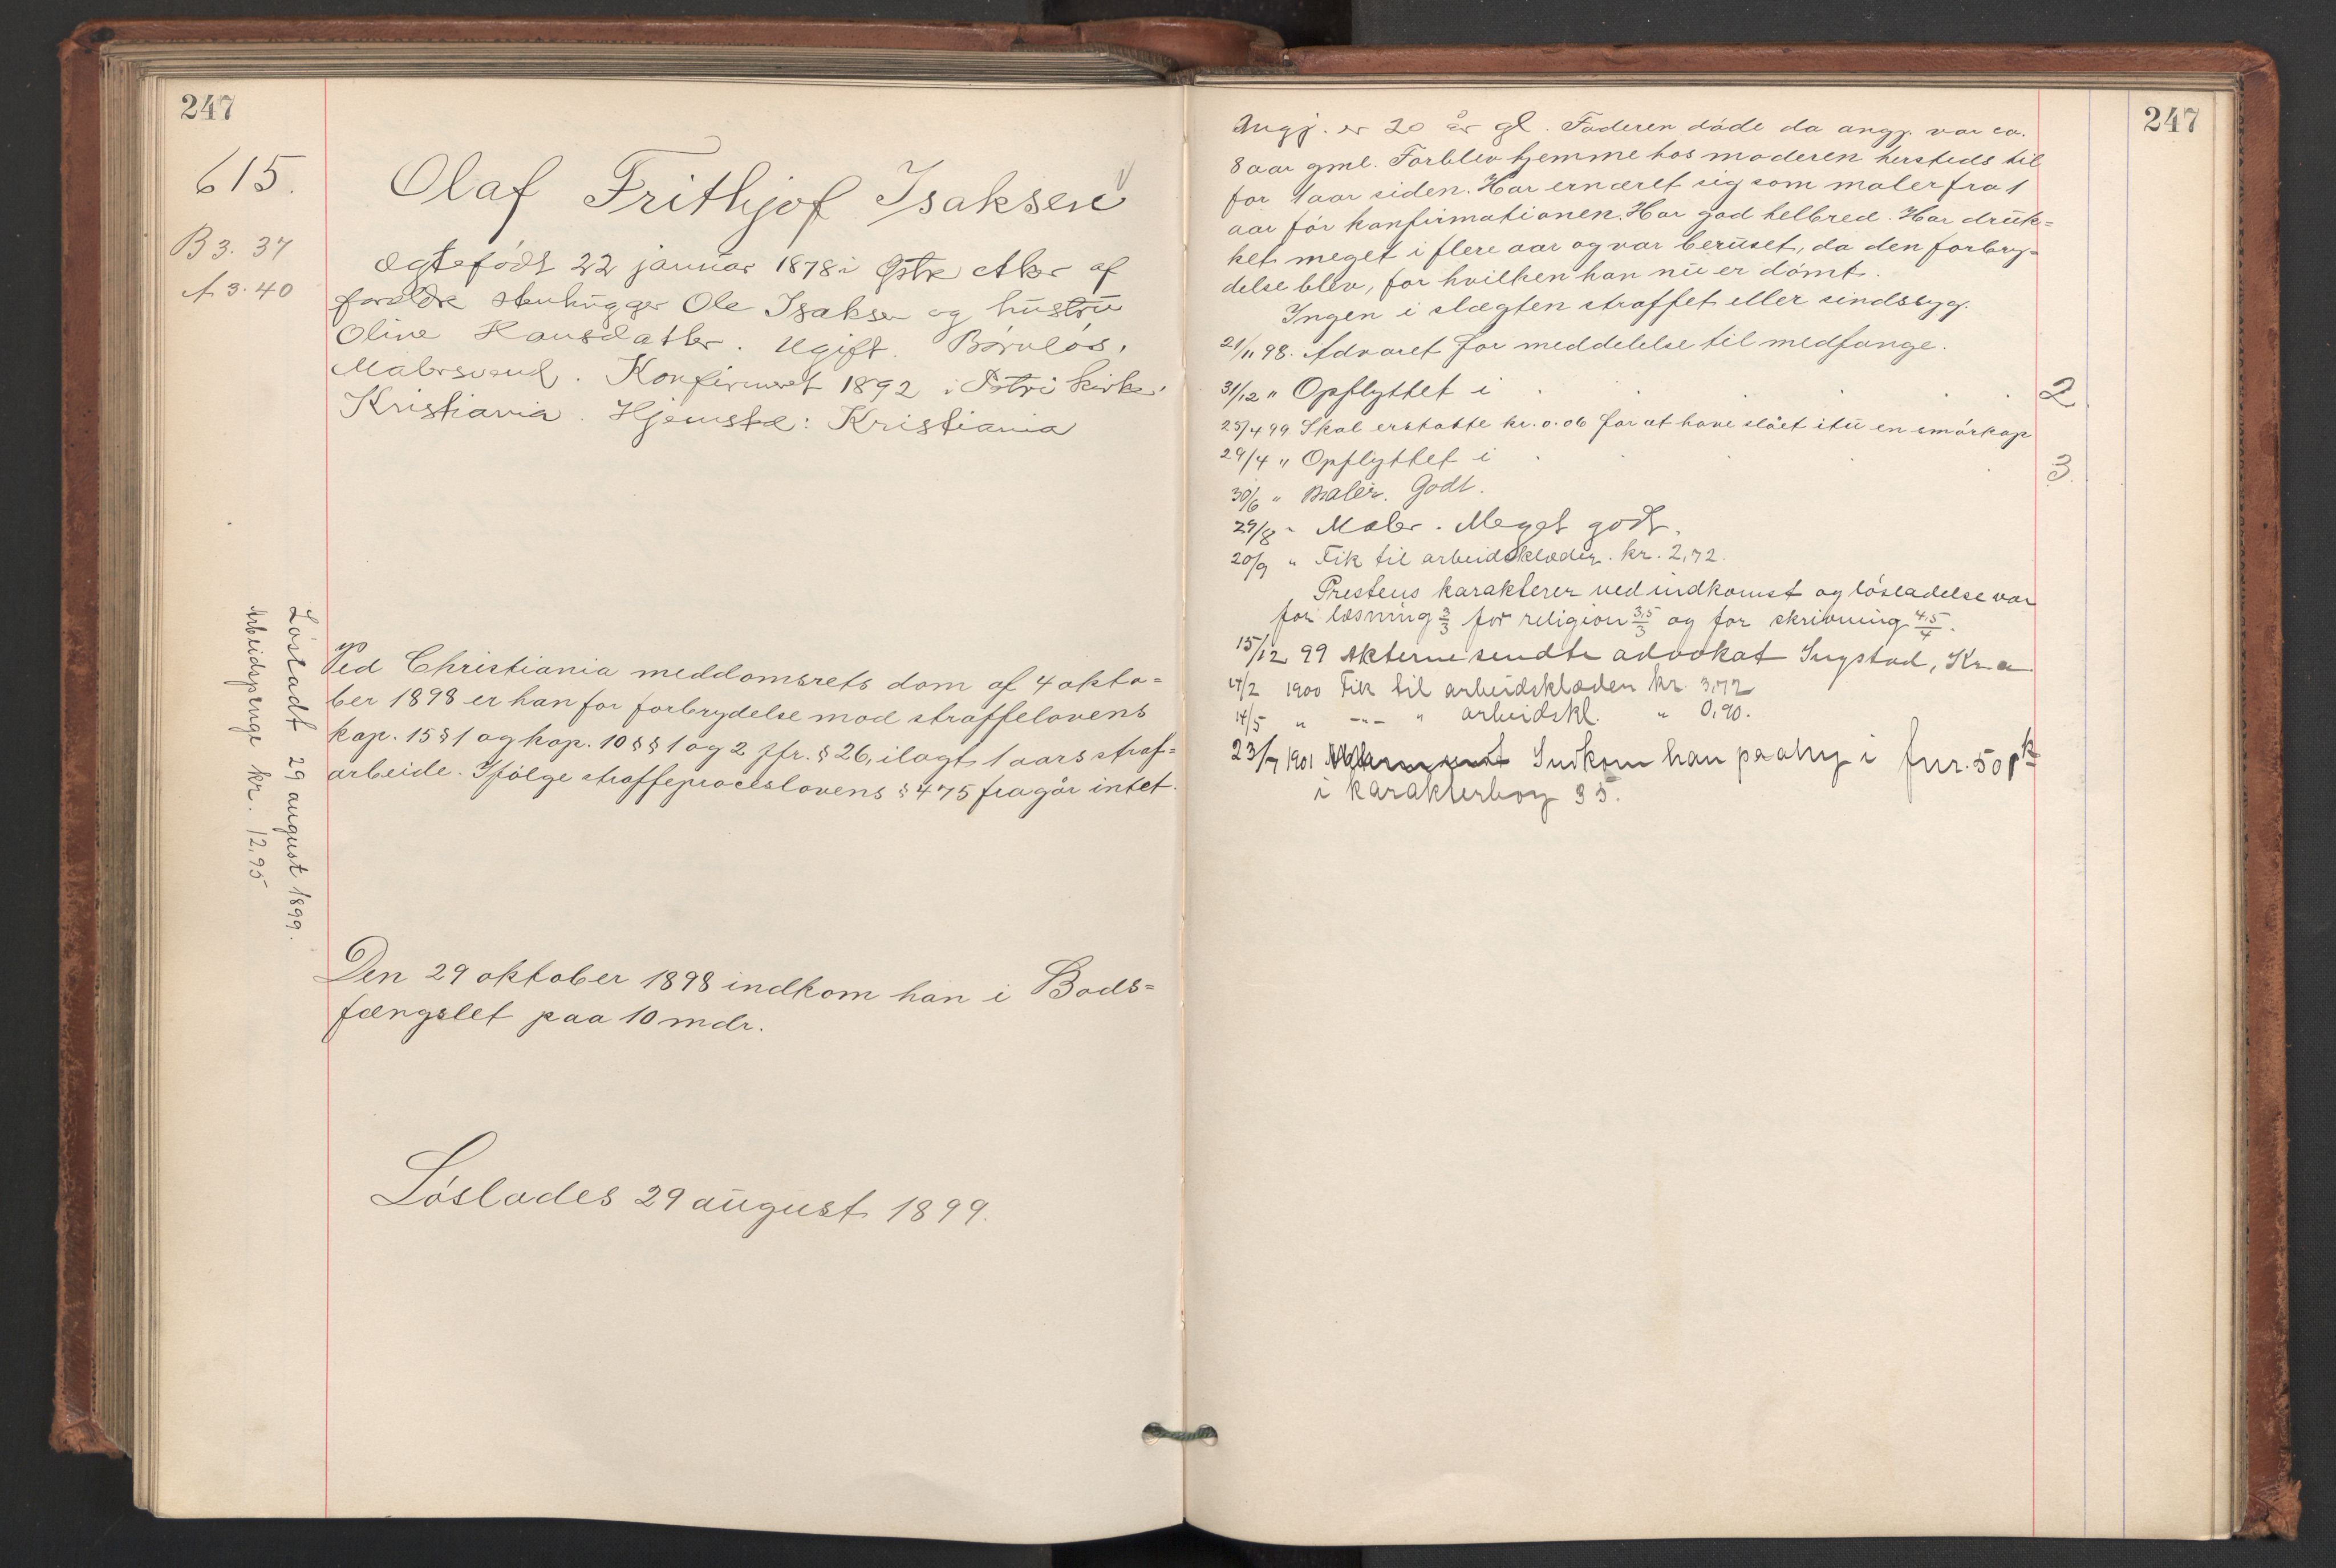 247
615.
B 3. 37
A 3. 40
Olaf Frithjof Isaksen
Ægtefödt 22 januar 1878 i Östre Aker af
forældre stenhugger Ole Isaksen og hustru
Oline Hansdatter. Ugift. Barnlös.
Malersvend. Konfirmeret 1892 i Petri kirke,
Kristiania. Hjemsted: Kristiania
Ved Christiania meddomsrets dom af 4 okto=
ber 1898 er han for forbrydelse mod straffelovens
kap. 15 § 1 og kap. 10 §§ 1 og 2 jfr. § 26, ilagt 1 aars straf=
arbeide. Ifölge straffeproceslovens § 475 fragår intet.
Lösladt 29 august 1899.
Arbeidspenge kr. 12,95
Den 29 oktober 1898 indkom han i Bods=
fængslet paa 10 mdr.
Löslades 29 august 1899.
247
Angj. er 20 år gl. Faderen döde da angj. var ca.
8 aar gml. Forblev hjemme hos moderen hersteds til
for 1 aar siden. Har ernæret sig som maler fra 1
aar för konfirmationen. Har god helbred. Har druk=
ket meget i flere aar og var beruset, da den forbry=
delse blev, for hvilken han nu er dömt.
Ingen i slægten straffet eller sindssyg.
21/11 98. Advaret for meddelelse til medfange.
31/12 " Opflyttet i . . . . 2
25/4 99 Skal erstatte kr. 0.06 for at have slået itu en smörkop
29/4 " Opflyttet i . . . . 3.
30/6 " Maler. Godt.
29/8 " Maler. Meget godt.
20/9 " Fik til arbeidsklæder. kr. 2,72.
Prestens karakterer ved indkomst og lösladelse var
for læsning 3/3 for religion 3,5/3 og for skrivning 4,5/4.
15/12 99 Akterne sendte advokat Ingstad, Kr.a
14/2 1900 Fik til arbeidsklæder kr. 3,72
14/5 " -"- " arbeidskl. " 0,90.
23/7 1901 Indkom han paany i fnr. 50
i karakterbog 35.